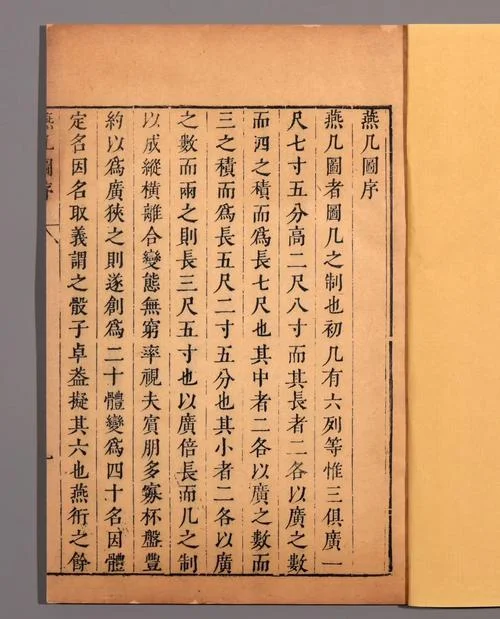 燕几圖序
燕几圖者圖几之制也初几有六列等惟三俱廣一
尺七寸五分高二尺八寸而其長者二各以廣之數
而四之積而爲長七尺也其中者二各以廣之數而
三之積而爲長五尺二寸五分也其小者二各以廣
之數而兩之則長三尺五寸也以廣倍長而几之制
以成縱橫離合變態無窮率視夫賔朋多寡杯盤豐
約以爲廣狹之則遂創爲二十體變爲四十名因體
定名因名取義謂之骰子卓葢擬其六也燕衎之餘
燕几圖序